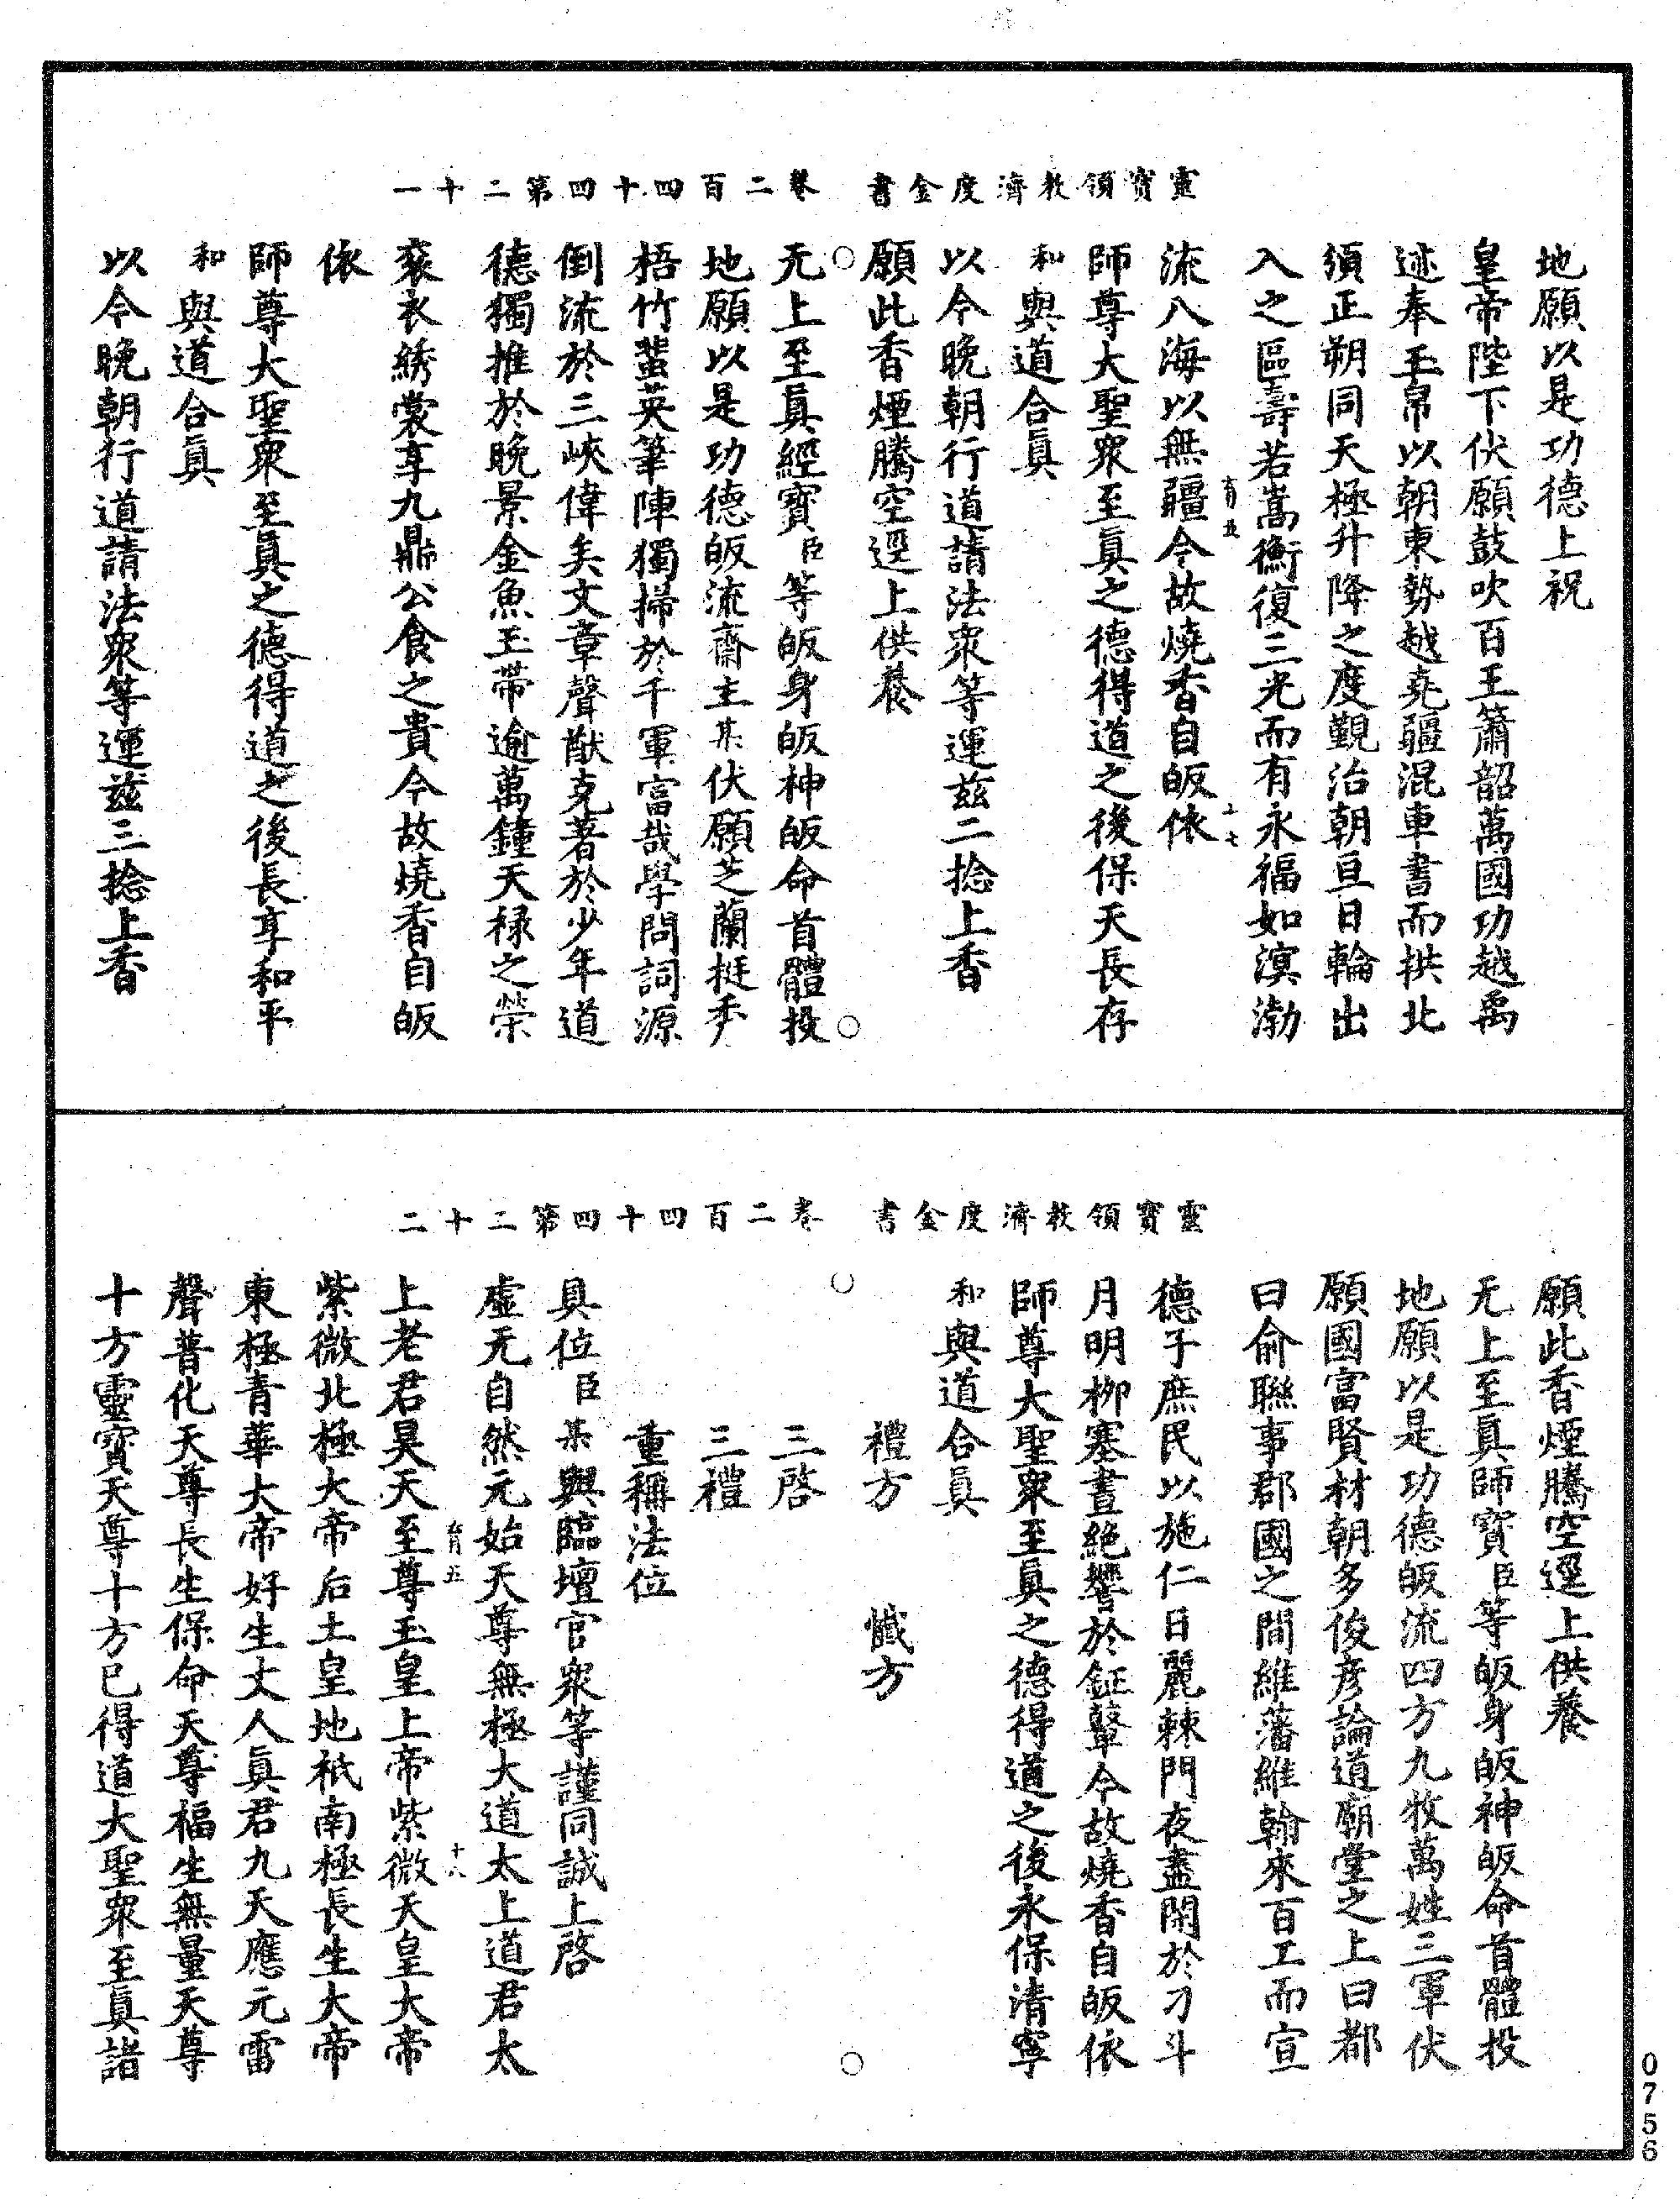 靈寶領教濟度金書　卷二百四十四第二十一
地願以是功德上祝
皇帝陛下伏願鼓吹百王簫韶萬國功越禹
迹奉玉帛以朝東勢越堯疆混車書而拱北
須正朔同天極升降之度觀治朝亘日輪出
入之區壽若嵩衡復三光而有永福如溟渤
育五　十七
流八海以無疆今故燒香自皈依
師尊大聖眾至眞之德得道之後保天長存
和與道合眞
以今晚朝行道請法眾等運茲二捻上香
願此香煙騰空逕上供養
无上至眞經寶臣等皈身皈神皈命首體投
地願以是功德皈流齋主某伏願芝蘭挺秀
梧竹蜚英筆陣獨掃於千軍富哉學問詞源
倒流於三峽偉矣文章聲猷克著於少年道
德獨推於晚景金魚玉帶逾萬鐘天祿之榮
袞衣綉裳享九鼎公食之貴今故燒香自皈
依
師尊大聖眾至眞之德得道之後長享和平
和與道合眞
以今晚朝行道請法眾等運茲三捻上香
靈寶領教濟度金書　卷二百四十四第二十二
願此香煙騰空逕上供養
无上至眞師寶臣等皈身皈神皈命首體投
地願以是功德皈流四方九牧萬姓三軍伏
願國富賢材朝多俊彥論道廟堂之上曰都
曰俞聯事郡國之間維藩維翰來百工而宣
德子庶民以施仁日麗棘門夜盡閑於刁斗
月明柳塞晝絕響於鉦鼙今故燒香自皈依
師尊大聖眾至眞之德得道之後永保清寧
和與道合眞
禮方　懺方
三啓
三禮
重稱法位
具位臣某與臨壇官眾等謹同誠上啓
虛无自然元始天尊無極大道太上道君太
上老君昊天至尊玉皇上帝紫微天皇大帝
育五　十八
紫微北極大帝后土皇地祇南極長生大帝
東極青華大帝好生丈人眞君九天應元雷
聲普化天尊長生保命天尊福生無量天尊
十方靈寶天尊十方已得道大聖眾至眞諸
0756